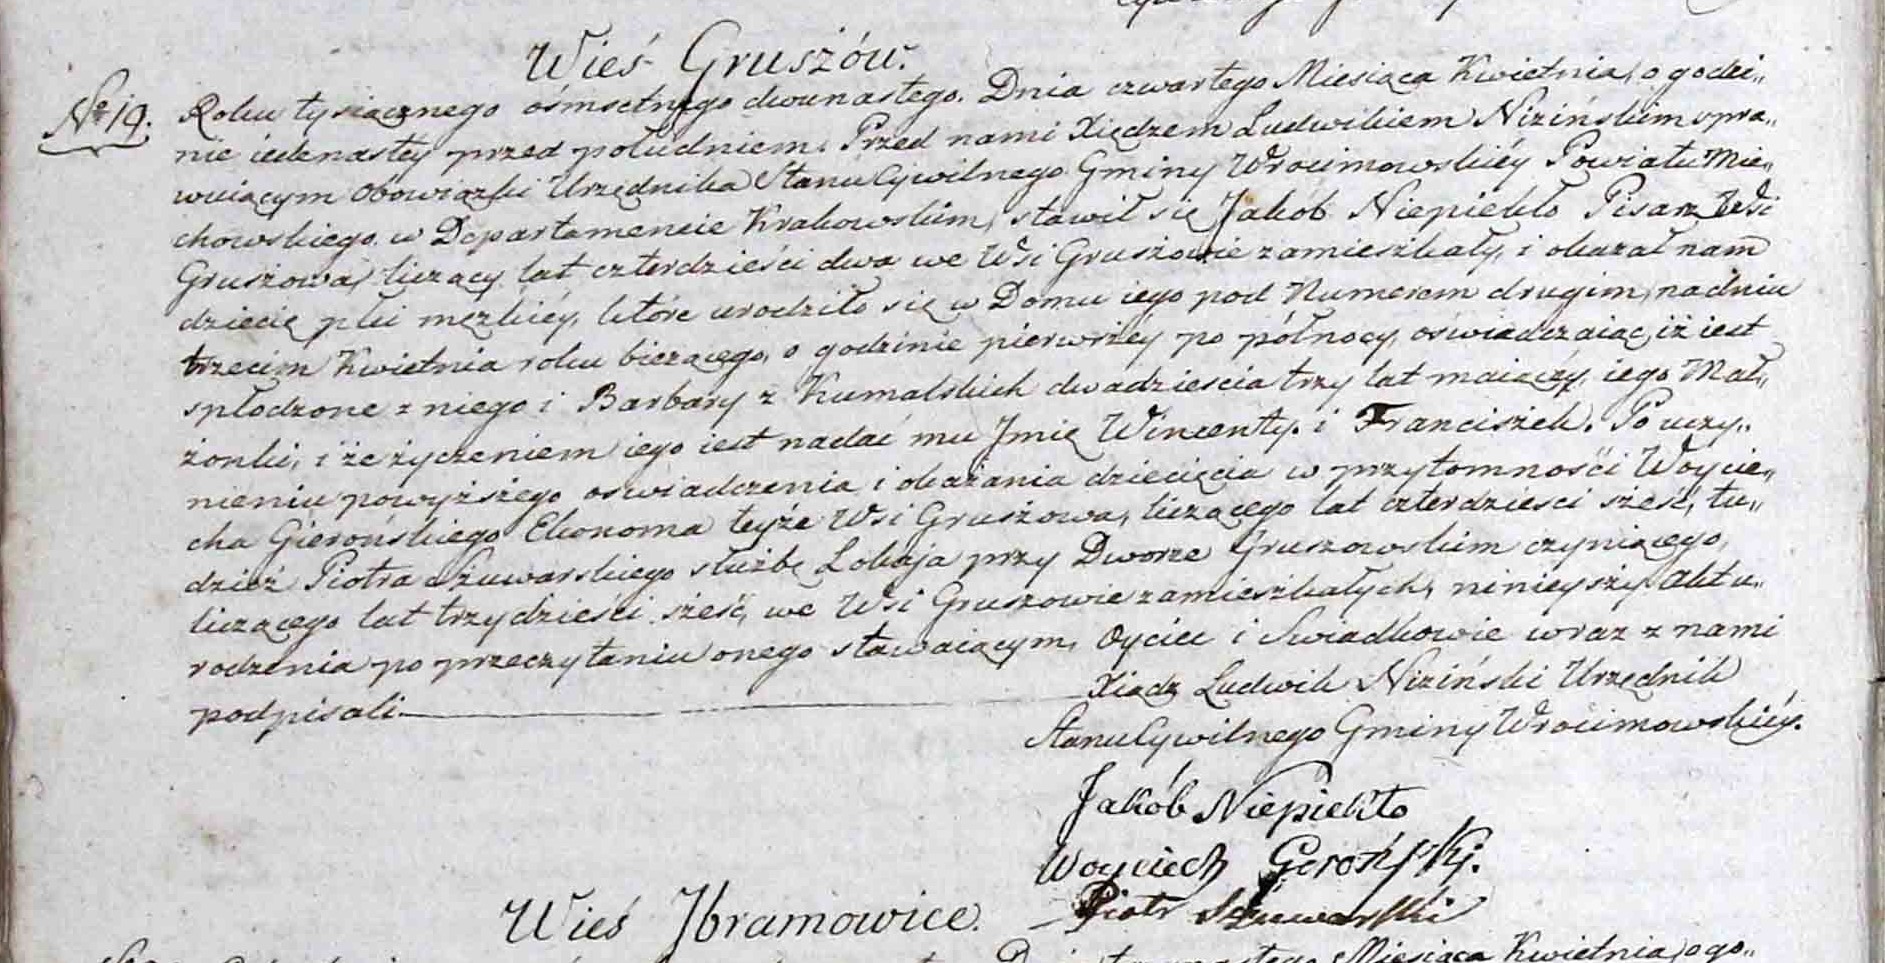 Wieś Gruszów.
No 19. Roku tysiącznego ośmsetnego dwunastego. Dnia czwartego Miesiąca Kwietnia, o godzi„
nie iedenastéy przed południem. Przed nami Xiędzem Ludwikiem Nizińskim spra„
wuiącym Obowiązki Urzędnika Stanu Cywilnego Gminy Wrocimowskiéy Powiatu Mie„
chowskiego w Departamencie Krakowskim, stawił się Jakob Niepiekło Pisarz Wsi
Gruszowa, liczący lat czterdzieści dwa we Wsi Gruszowie zamieszkały, i okazał nam
dziecię płci męzkiéy, które urodziło się w Domu iego pod Numerem drugim, na dniu
trzecim Kwietnia roku bieżącego, o godzinie pierwszey po północy, oświadczaiąc, iż iest
spłodzone z niego i Barbary z Kumalskich dwadzieścia trzy lat maiączy, iego Mał„
żonki, i że życzeniem iego iest nadać mu Jmię Wincenty. i Franciszek. Po uczy„
nieniu powyższego oswiadczenia i okazania dziecięcia w przytomności Woycie„
cha Gierońskiego Ekonoma teyże Wsi Gruszowa, liczącego lat czterdziesci sześć, tu„
dzież Piotra służbę Lokaja przy Dworze Gruszowskim czyniącego,
liczącego lat trzydzieści sześć, we Wsi Gruszowie zamieszkałych, ninieyszy Akt u„
rodzenia po przeczytaniu onego stawaiącym, Oyciec i Swiadkowie wraz z nami
podpisali. Xiądz Ludwik Niziński Urzędnik
Stanu Cywilnego Gminy Wrocimowskiéy.
Jakób Niepiekło
Woyciech Gerońsky.
Piotr
Wieś Jbramowice.
Miesiąca Kwietnia, o go„